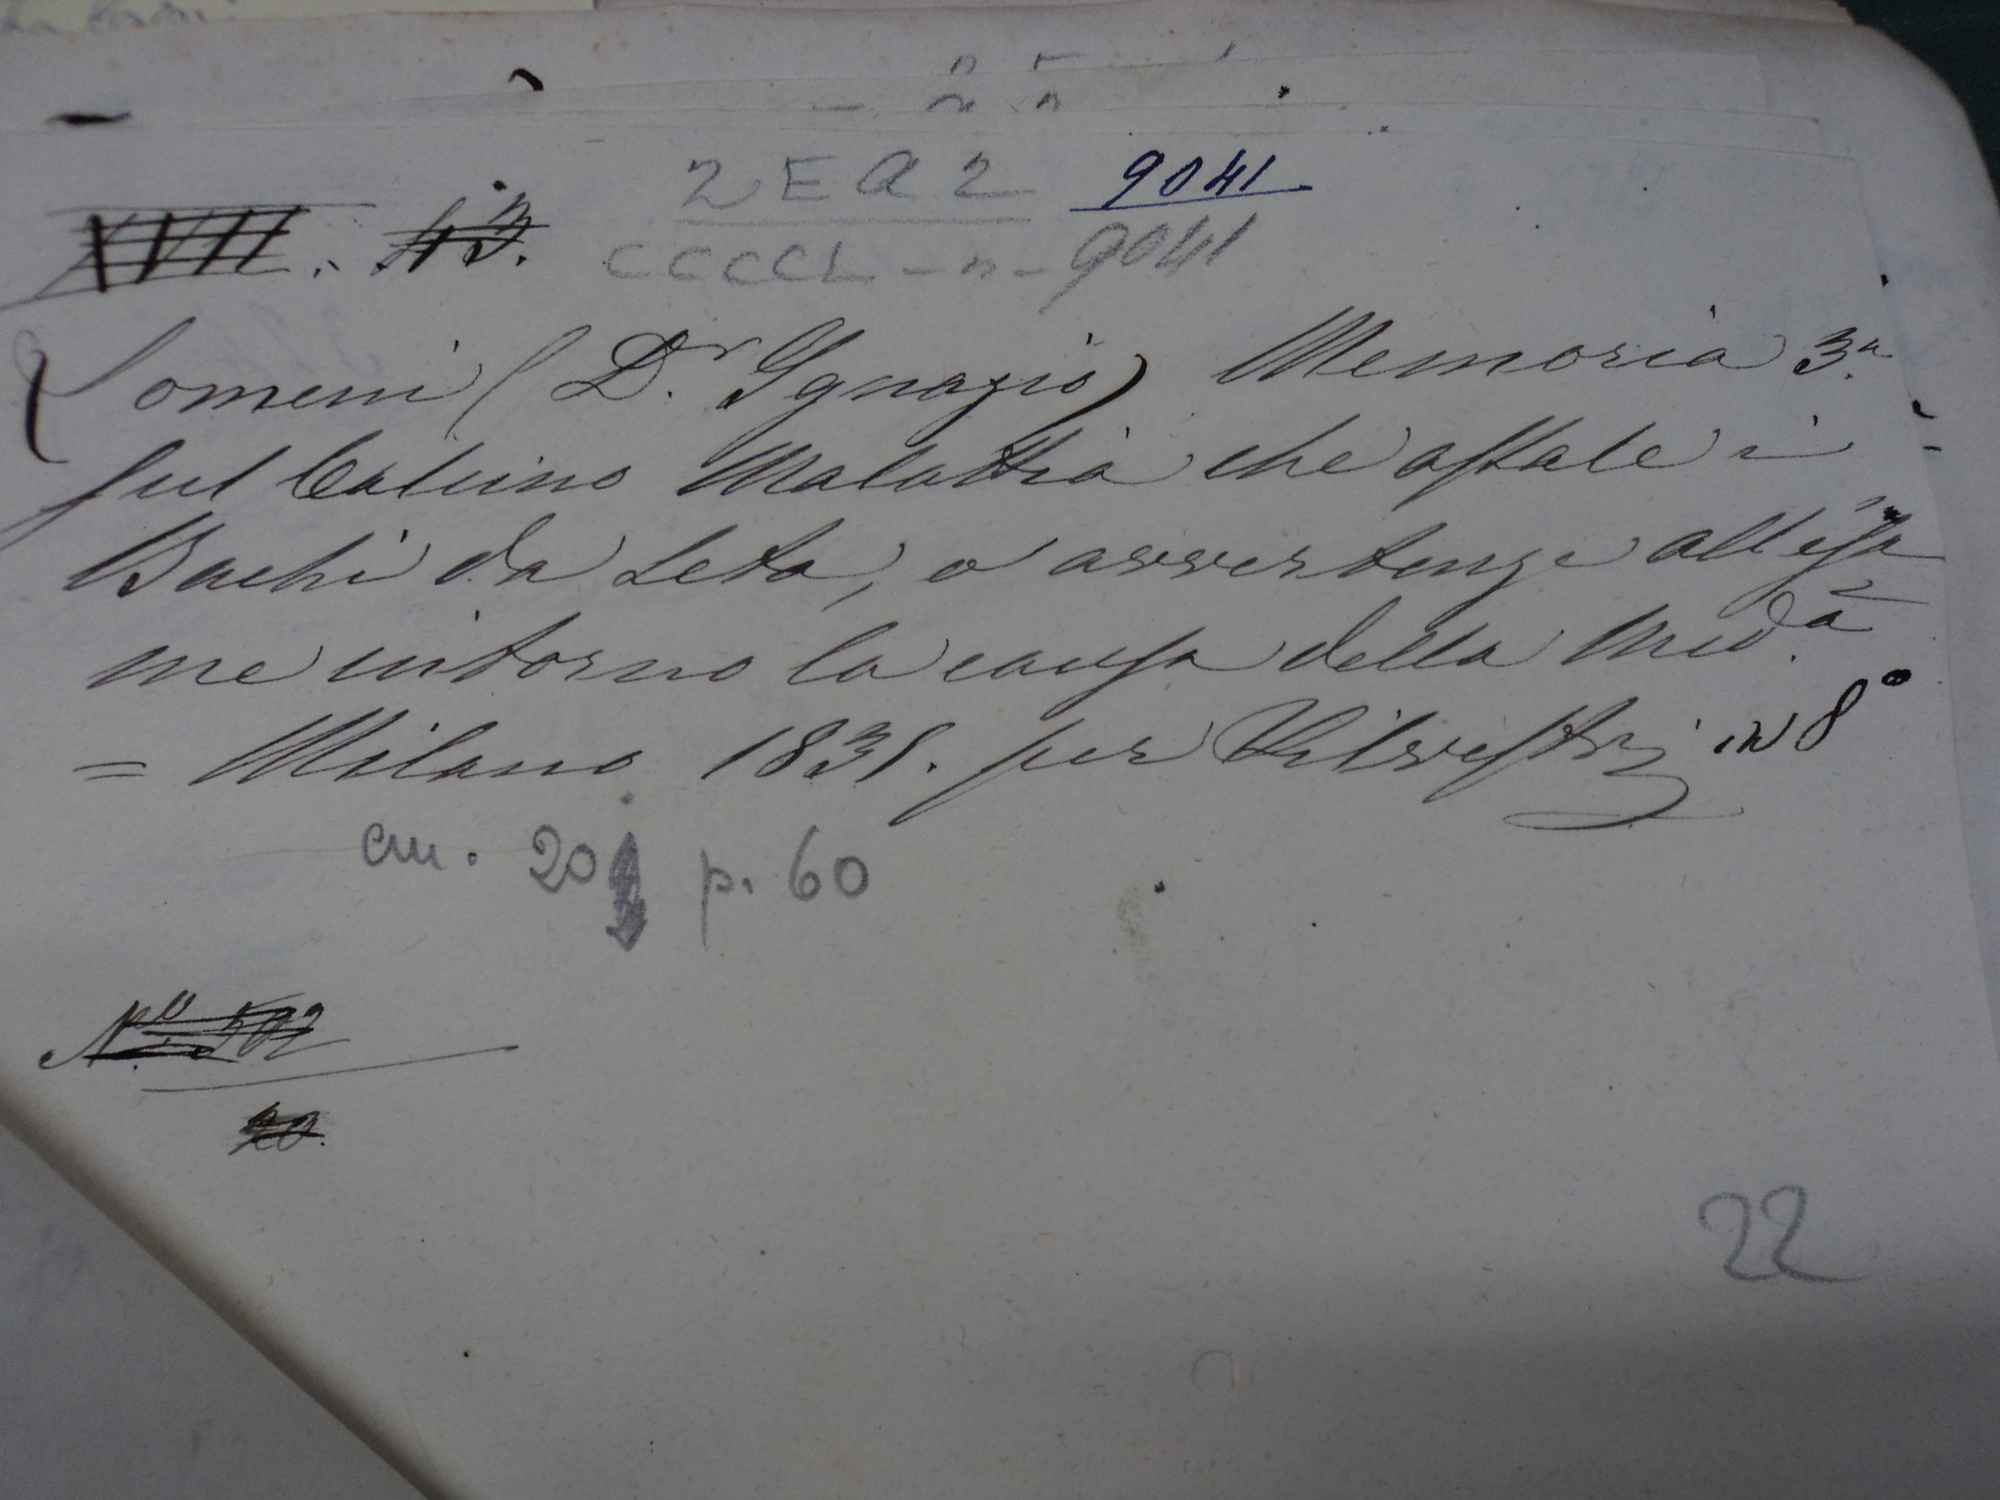 2 E a 2 9041
XVII. 43.
CCCCL - n - 9041
Lomeni (D.r Ignazio) Memoria 3.a
sul Calcino Malattia che assale i
Bachi da Seta, o avvertenze all'esa
me intorno la causa della Med.a
= Milano 1835. per Silvestri in 8°
cm. 20 p. 60
N.° 502
20.
22